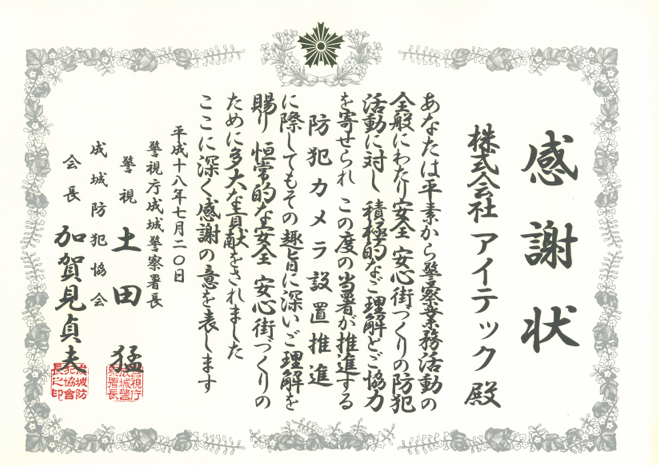 感謝状
株式会社 アイテック 殿
あなたは平素から警察業務活動の
全般にわたり安全 安心街づくりの防犯
活動に対し 積極的なご理解とご協力
を寄せられ この度の当署が推進する
防犯カメラ設置推進
に際してもその趣旨に深いご理解を
賜り 恒常的な安全 安心街づくりの
ために多大な貢献をされました
ここに深く感謝の意を表します
平成十八年七月二〇日
警視庁成城警察署長
警視 土田 猛
成城防犯協会
会長 加賀見貞夫